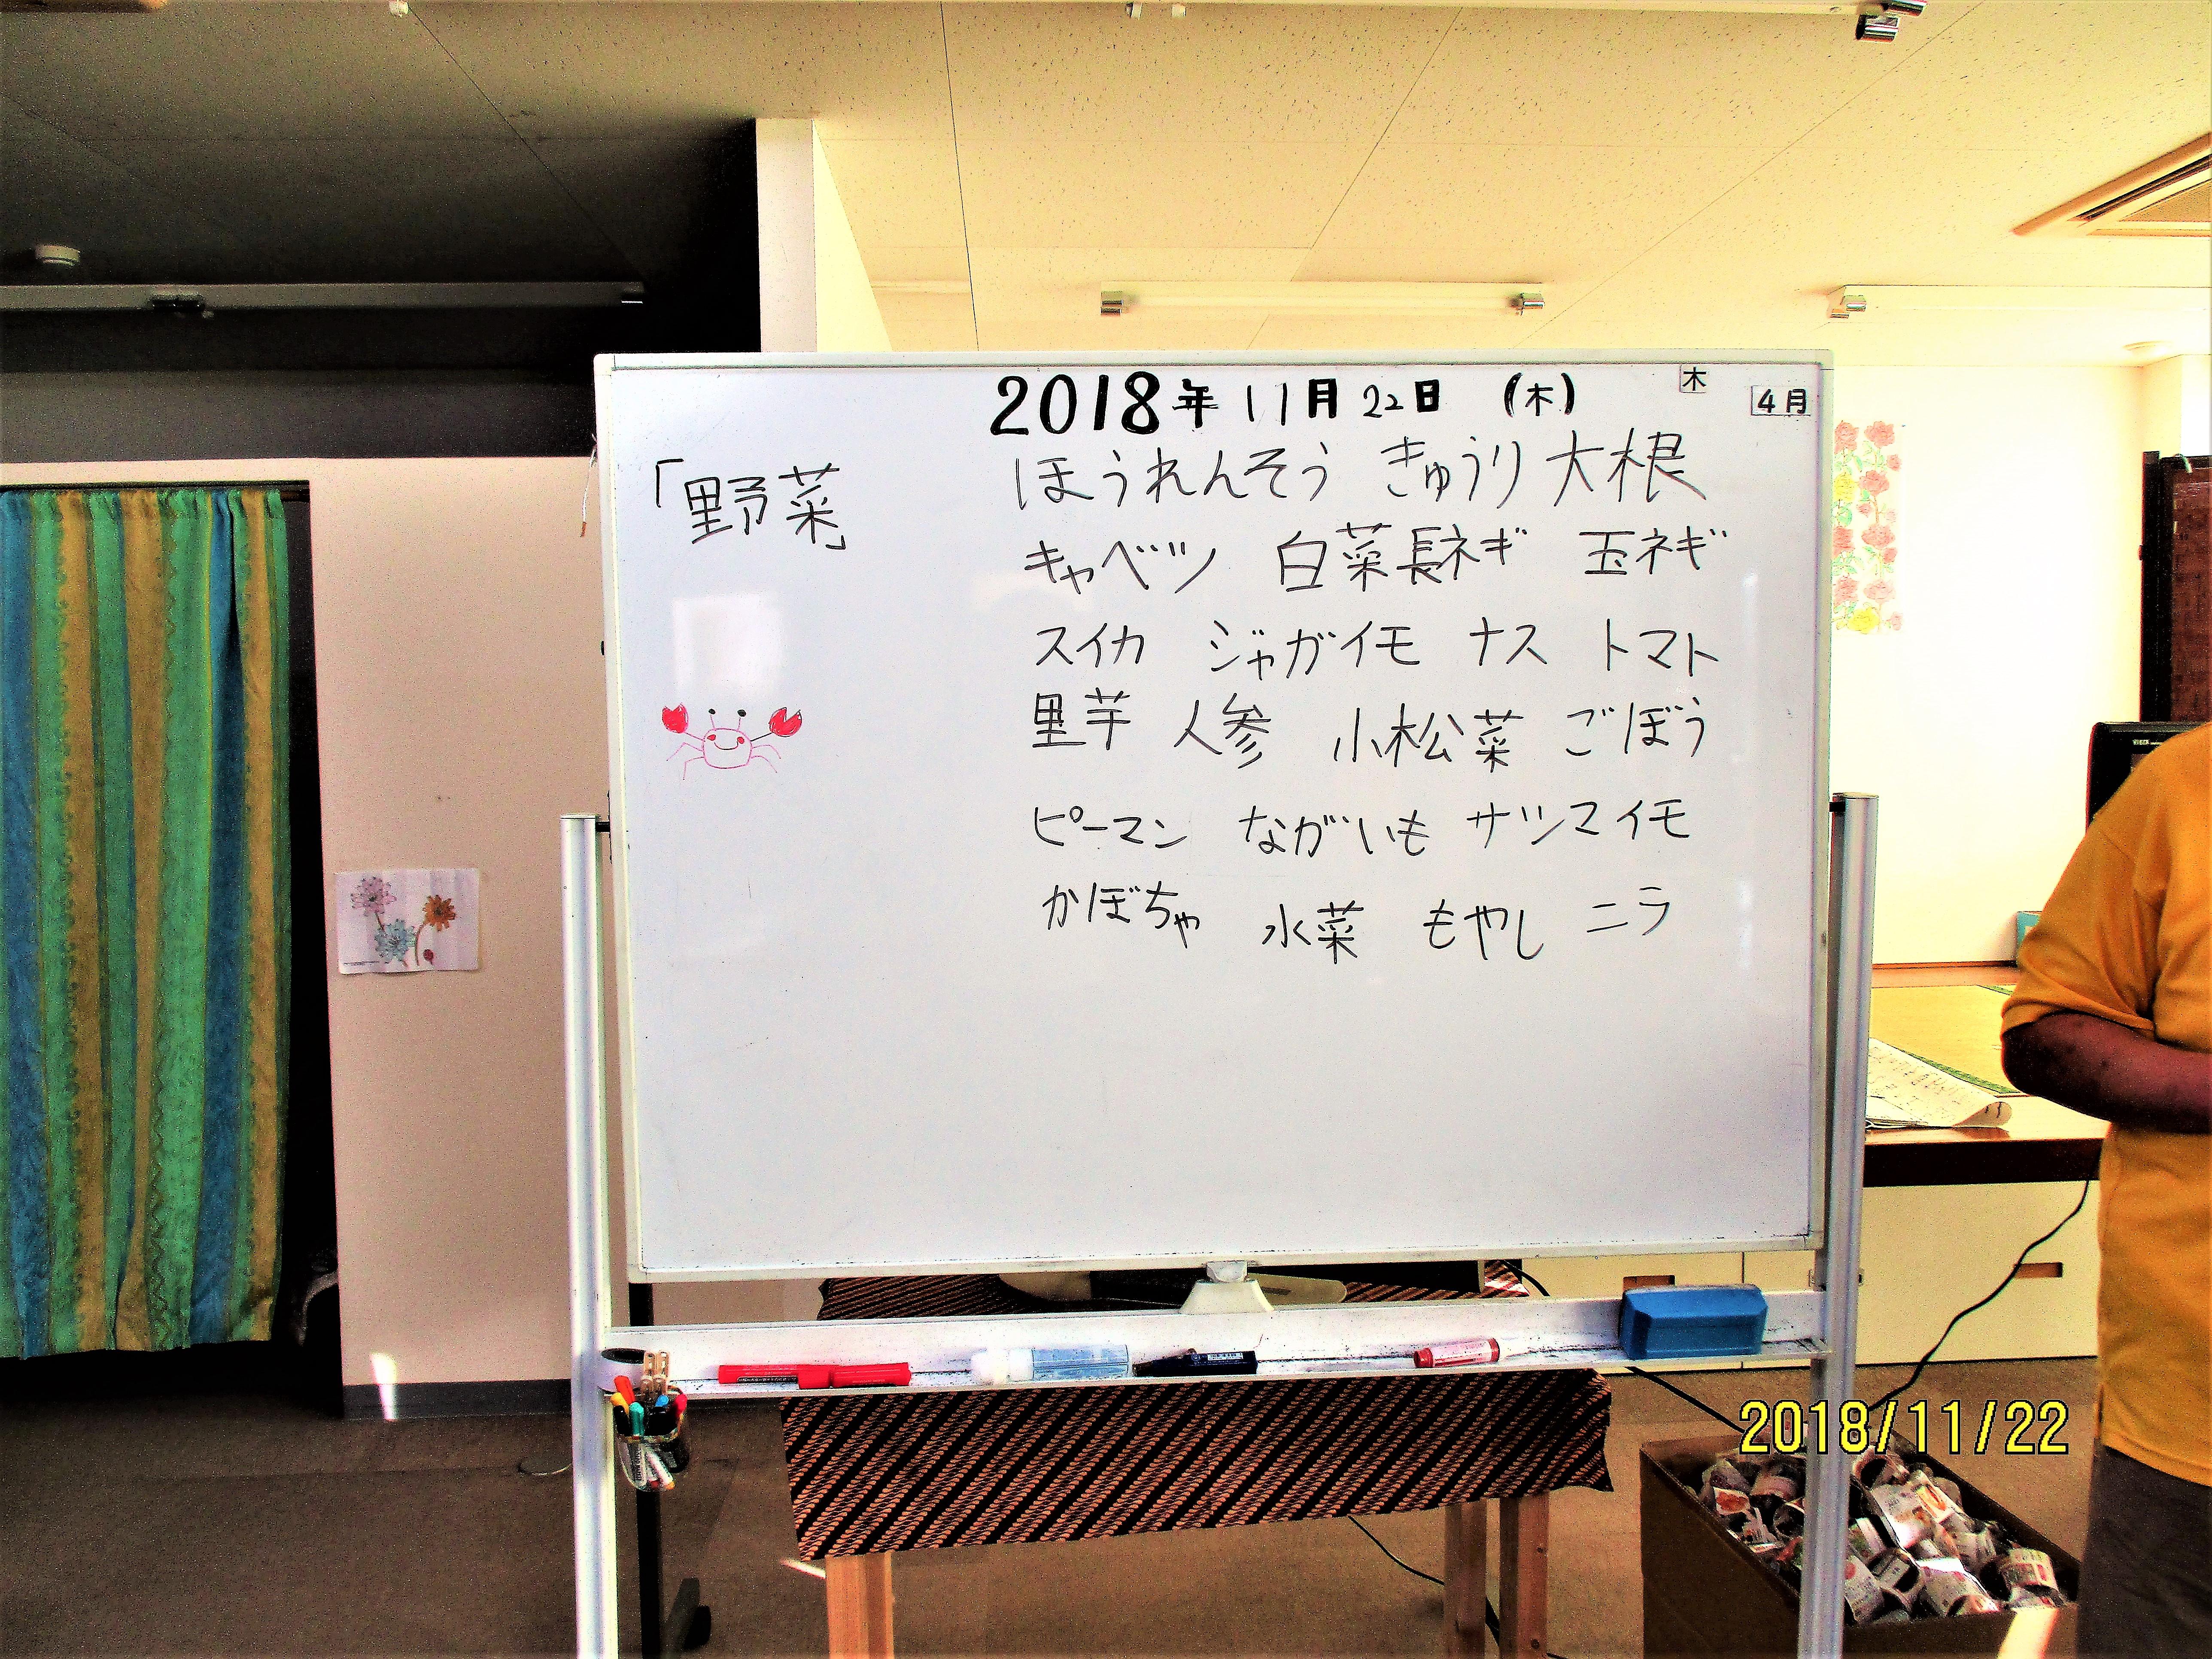 2018年 11月 22日 (木)
木
4月
「野菜」
ほうれんそう きゅうり 大根
キャベツ 白菜 長ネギ 玉ネギ
スイカ ジャガイモ ナス トマト
里芋 人参 小松菜 ごぼう
ピーマン ながいも サツマイモ
かぼちゃ 水菜 もやし ニラ
2018/11/22